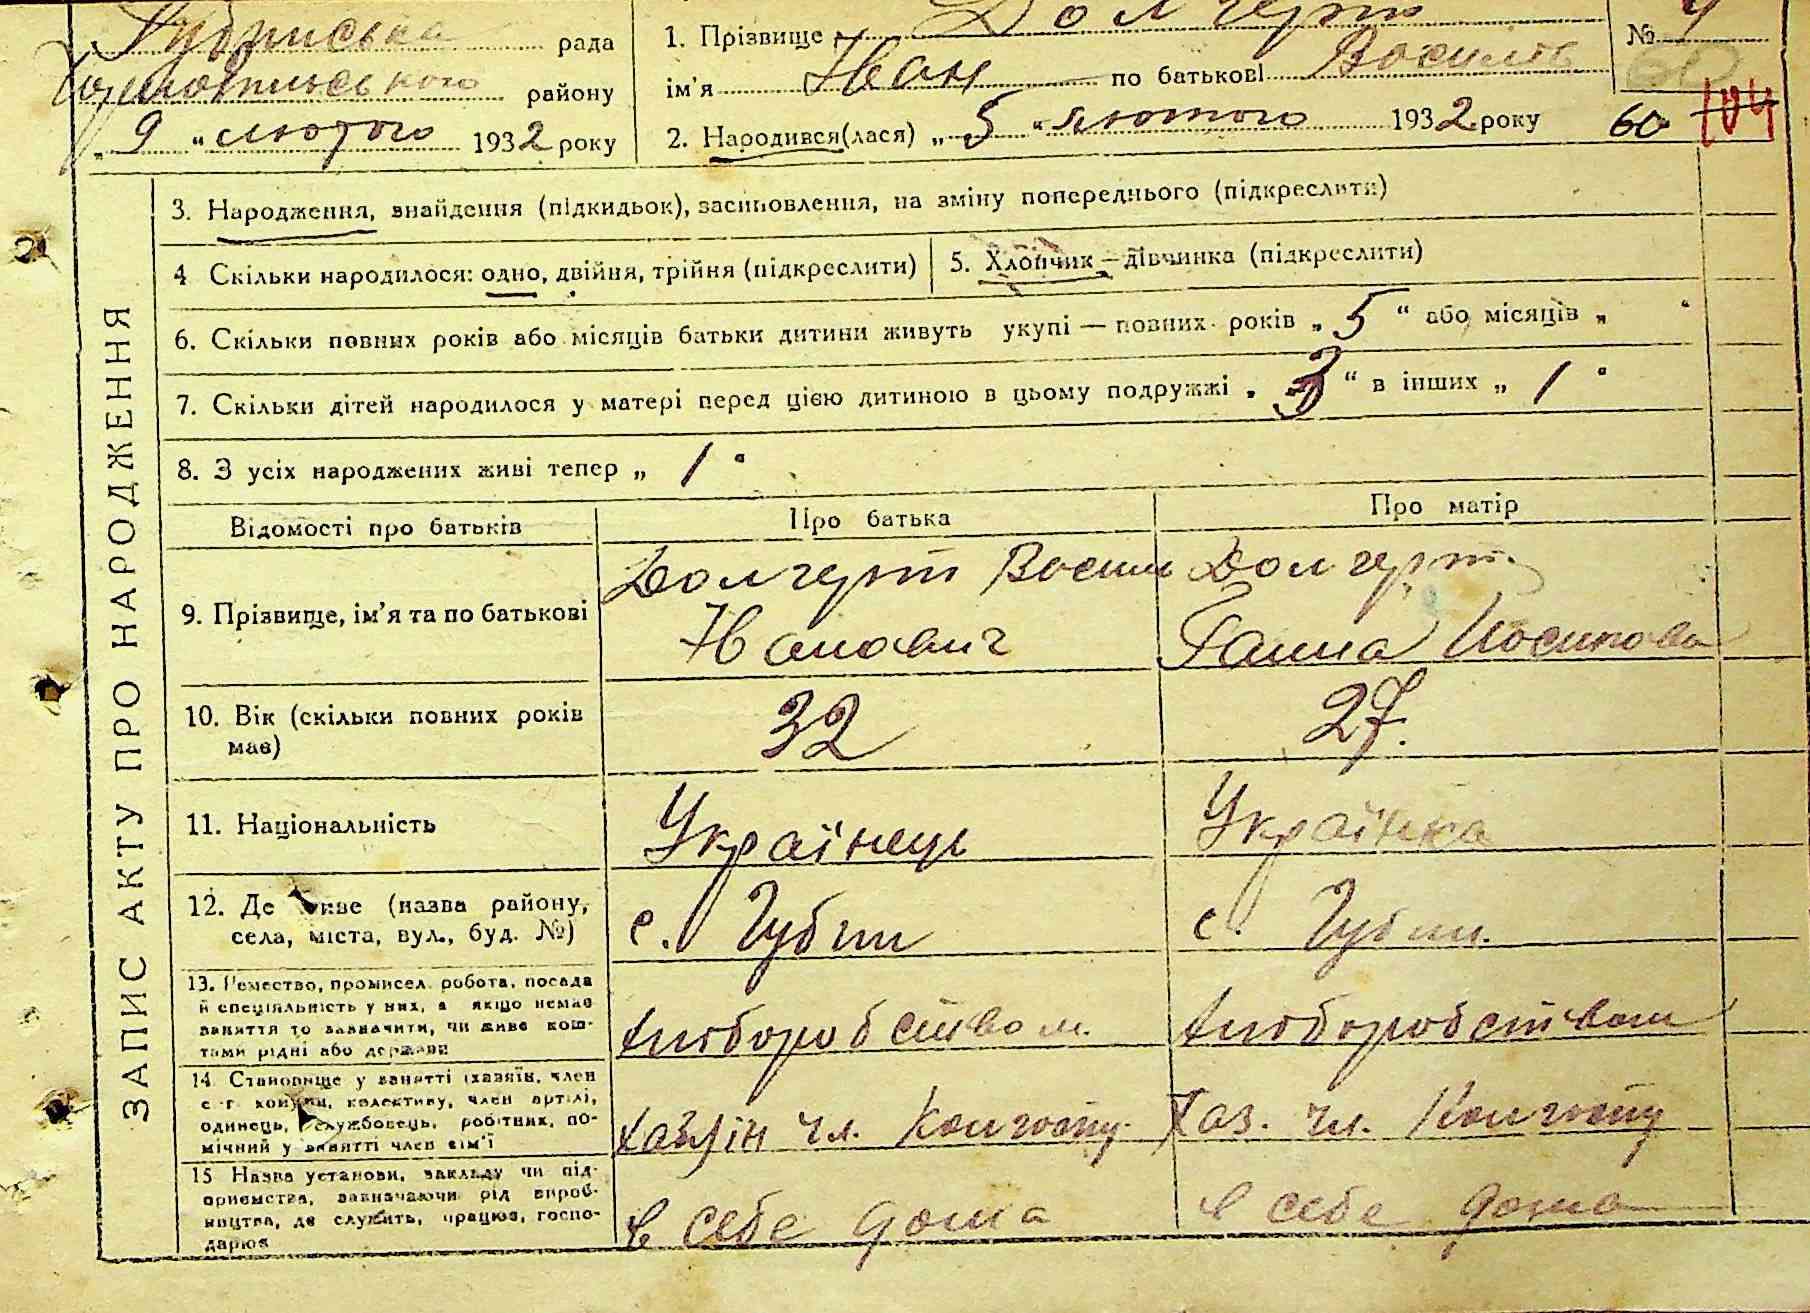 Губинська рада
району
„ 9 “ лютого 1932 року
1. Прізвище Долгерт
ім'я Іван по батькові Василів
2. Народився(лася) „ 5 “ лютого 1932 року
№ 4
60
60 104
ЗАПИС АКТУ ПРО НАРОДЖЕННЯ
3. Народження, знайдення (підкидьок), засиновлення, на зміну попереднього (підкреслити)
4 Скільки народилося: одно, двійня, трійня (підкреслити)
5. Хлопчик — дівчинка (підкреслити)
6. Скільки повних років або місяців батьки дитини живуть укупі — повних років „ 5 “ або місяців „ “
7. Скільки дітей народилося у матері перед цією дитиною в цьому подружжі „ 3 “ в інших „ 1 “
8. З усіх народжених живі тепер „ 1 “
Відомості про батьків
Про батька
Про матір
9. Прізвище, ім'я та по батькові
Долгерт Васил
Іванович
Долгерт
Ганна Йосипова
10. Вік (скільки повних років
має)
32
27.
11. Національність
Українець
Українка
12. Де живе (назва району,
села, міста, вул., буд. №)
с. Губин
с. Губин.
13. Ремество, промисел, робота, посада
й спеціяльність у них, а якщо немає
заняття то зазначити, чи живе кош-
тами рідні або держави
хліборобством.
хліборобством
14 Становище у занятті (хазяїн, член
с.-г. комуни, колективу, член артілі,
одинець, службовець, робітник, по-
мічний у занятті член сім'ї
хазяїн чл. Колгоспу.
Хаз. чл. Колгоспу
15 Назва установи, закладу чи під-
приємства, зазначаючи рід вироб-
ництва, де служить, працює, госпо-
дарює
в себе дома
в себе дома